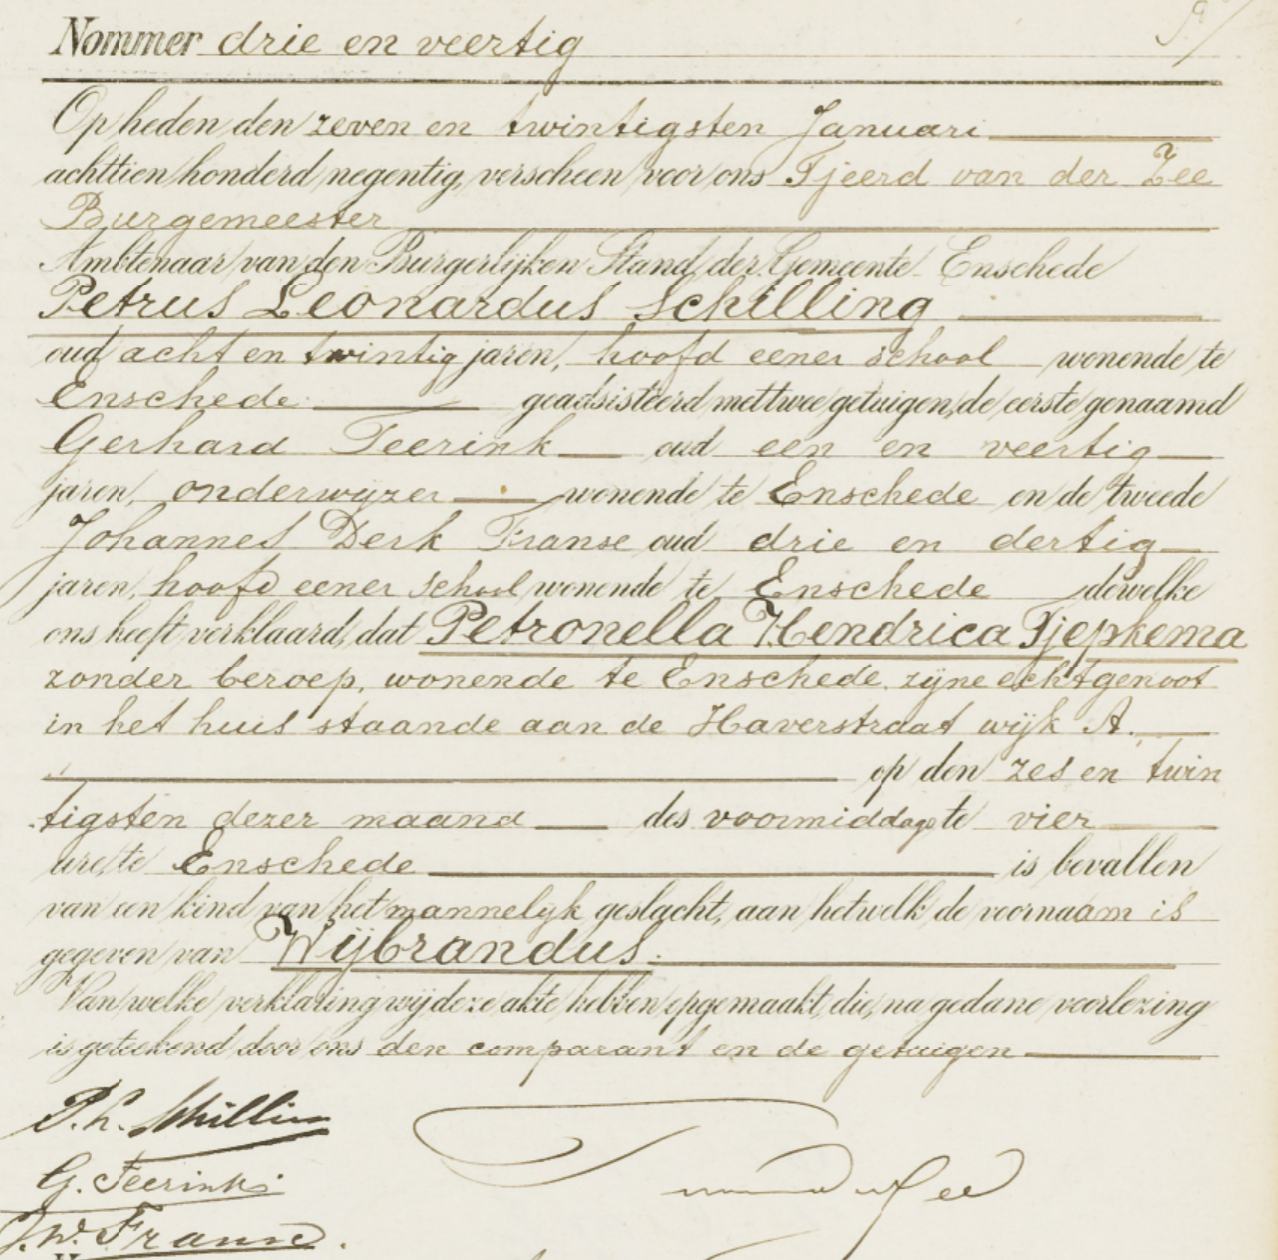 Nommer drie en veertig
Op heden den zeven en twintigsten Januari
achttien honderd negentig, verscheen voor ons Tjeerd van der Zee
Burgemeester
Ambtenaar van den Burgerlijken Stand der Gemeente Enschede
Petrus Leonardus Schilling
oud acht en twintig jaren, hoofd eener school wonende te
Enschede geadsisteerd met twee getuigen, de eerste genaamd
Gerhard Teerink oud een en veertig
jaren, onderwyzer wonende te Enschede en de tweede
Johannes Derk Franse oud drie en dertig
jaren, hoofd eener school wonende te Enschede dewelke
ons heeft verklaard, dat Petronella Hendrica Tjepkema
zonder beroep, wonende te Enschede, zyne echtgenoot
in het huis staande aan de Haverstraat wijk A.
op den zes en twin
tigsten dezer maand des voormiddags te vier
ure, te Enschede is bevallen
van een kind van het mannelyk geslacht, aan hetwelk de voornaam is
gegeven van Wijbrandus.
Van welke verklaring wij deze akte hebben opgemaakt, die, na gedane voorlezing
is geteekend door ons den comparant en de getuigen
P.L. Schilling
G. Teerink